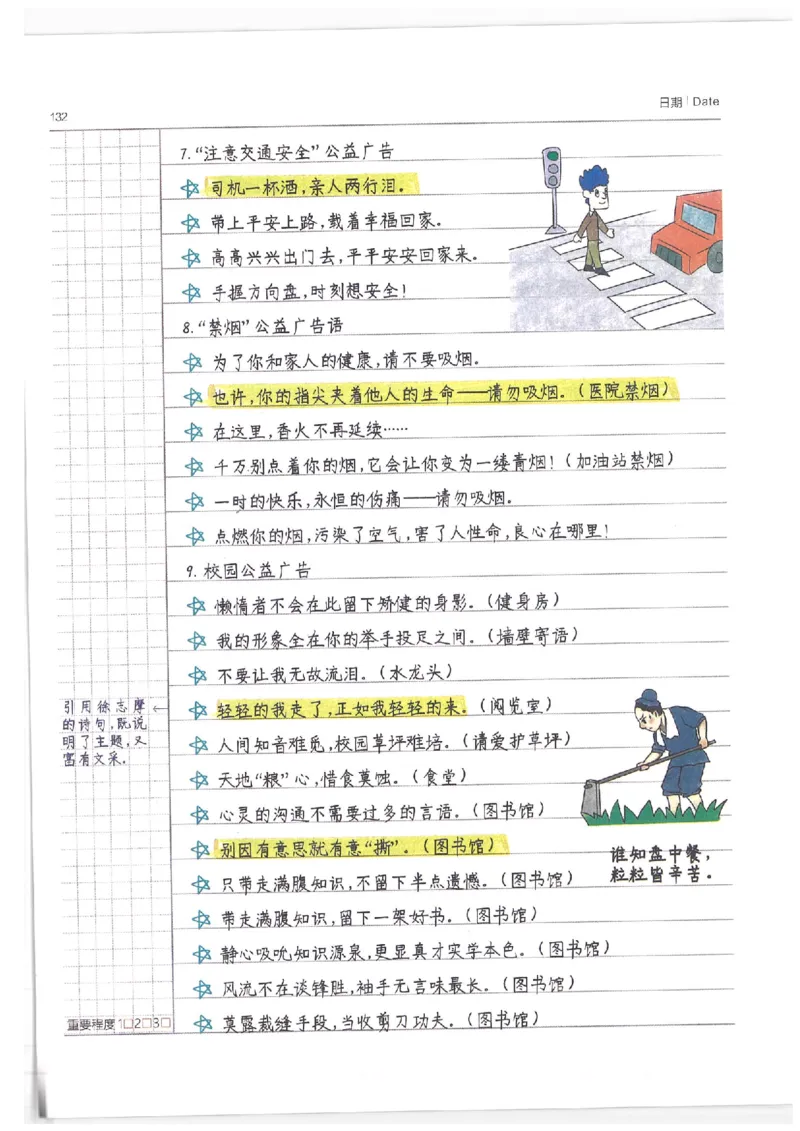 日期 | Date
132
7.“注意交通安全”公益广告
司机一杯酒,亲人两行泪.
带上平安上路,载着幸福回家.
高高兴兴出门去,平平安安回家来.
手握方向盘,时刻想安全!
8.“禁烟”公益广告语
为了你和家人的健康,请不要吸烟.
也许,你的指尖夹着他人的生命——请勿吸烟.(医院禁烟)
在这里,香火不再延续……
千万别点着你的烟,它会让你变为一缕青烟!(加油站禁烟)
一时的快乐,永恒的伤痛——请勿吸烟.
点燃你的烟,污染了空气,害了人性命,良心在哪里!
9.校园公益广告
懒惰者不会在此留下矫健的身影.(健身房)
我的形象全在你的举手投足之间.(墙壁寄语)
不要让我无故流泪.(水龙头)
轻轻的我走了,正如我轻轻的来.(阅览室)
引用徐志摩
的诗句,既说
明了主题,又
富有文采.
人间知音难觅,校园草坪难培.(请爱护草坪)
天地“粮”心,惜食莫蚀.(食堂)
心灵的沟通不需要过多的言语.(图书馆)
别因有意思就有意“撕”.(图书馆)
谁知盘中餐,
粒粒皆辛苦.
只带走满腹知识,不留下半点遗憾.(图书馆)
带走满腹知识,留下一架好书.(图书馆)
静心吸吮知识源泉,更显真才实学本色.(图书馆)
风流不在谈锋胜,袖手无言味最长.(图书馆)
莫露裁缝手段,当收剪刀功夫.(图书馆)
重要程度 1□2□3□